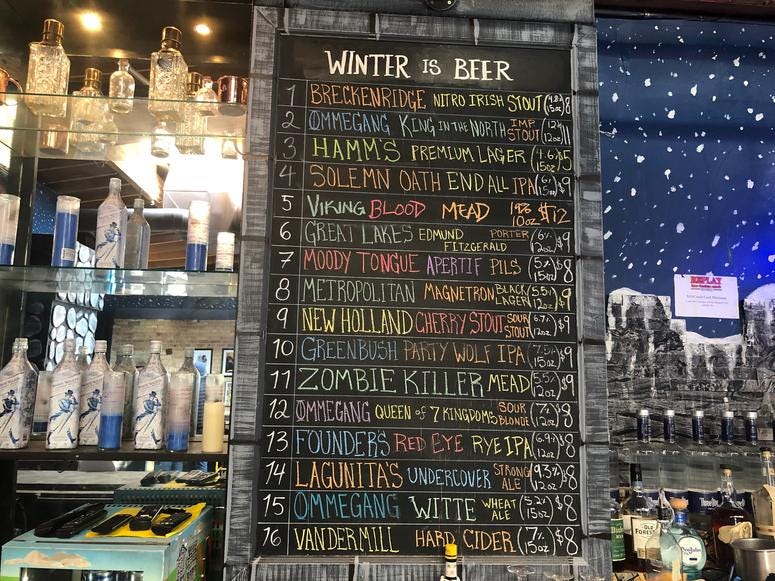 WINTER IS BEER
1 BRECKENRIDGE NITRO IRISH STOUT (4.8% 15oz) $8
2 OMMEGANG KING IN THE NORTH IMP. STOUT (12% 12oz) $11
3 HAMM'S PREMIUM LAGER (4.6% 15oz) $5
4 SOLEMN OATH END ALL IPA $9
5 VIKING BLOOD MEAD 19% 10oz $12
6 GREAT LAKES EDMUND FITZGERALD PORTER (6% 12oz) $9
7 MOODY TONGUE APERTIF PILS (5% 15oz) $8
8 METROPOLITAN MAGNETRON BLACK LAGER (5.5% 12oz) $9
9 NEW HOLLAND CHERRY STOUT SOUR STOUT (6.7% 12oz) $9
10 GREENBUSH PARTY WOLF IPA (7.5% 15oz) $9
11 ZOMBIE KILLER MEAD (5.5% 12oz) $9
12 ØMMEGANG QUEEN OF 7 KINGDOMS SOUR BLONDE (7% 12oz) $8
13 FOUNDER'S RED EYE RYE IPA (6.9% 12oz) $8
14 LAGUNITA'S UNDERCOVER STRONG ALE (9.3% 12oz) $8
15 OMMEGANG WITTE WHEAT ALE (5.2% 15oz) $8
16 VANDERMILL HARD CIDER (7% 15oz) $8
REPLAY
OLD FORESTER